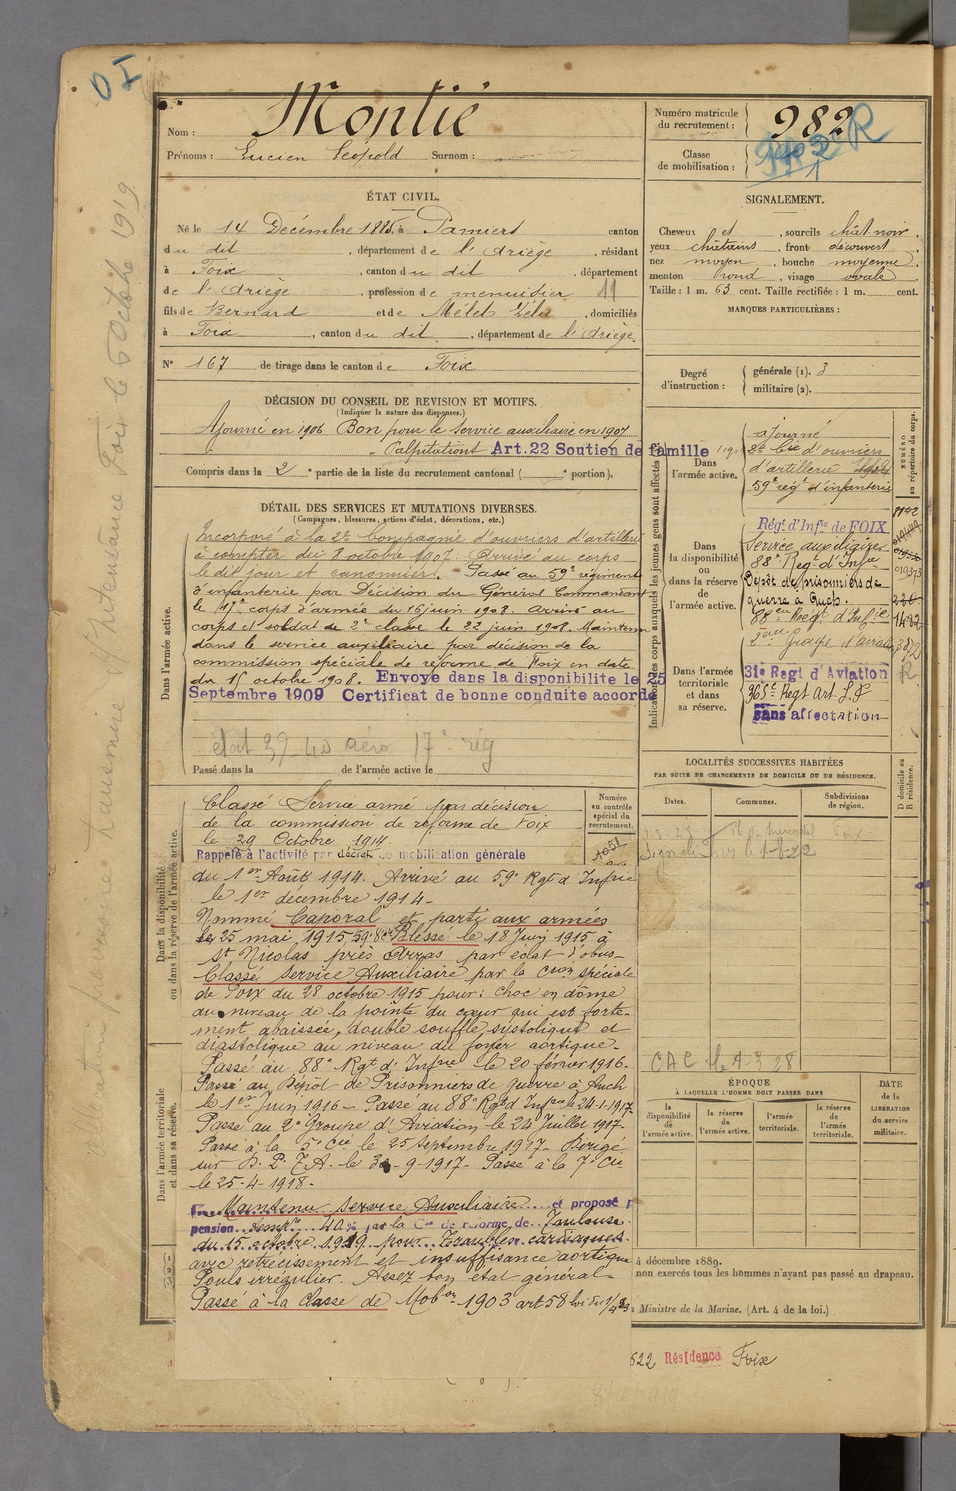 OI
Nom : Montié
Prénoms : Lucien Léopold Surnom :
Numéro matricule
du recrutement : 982
Classe
de mobilisation :
R
1
ÉTAT CIVIL.
Né le 14 Décembre 1885 à Pamiers canton
du dit , département de l'Ariège , résidant
à Foix , canton du dit , département
de l'Ariège , profession de menuisier 11
fils de Bernard et de Mélet Zélie , domiciliés
à Foix , canton du dit , département de l'Ariège
N° 167 de tirage dans le canton de Foix
DÉCISION DU CONSEIL DE REVISION ET MOTIFS.
(Indiquer la nature des dispenses.)
Ajourné en 1906 Bon pour le service auxiliaire en 1907
Palpitations Art. 22 Soutien de famille
Compris dans la 2e partie de la liste du recrutement cantonal ( e portion).
DÉTAIL DES SERVICES ET MUTATIONS DIVERSES.
(Campagnes, blessures, actions d'éclat, décorations, etc.)
Dans l'armée active.
Incorporé à la 2e Compagnie d'ouvriers d'artillerie
à compter du 8 octobre 1907. Arrivé au corps
le dit jour et canonnier. Passé au 59e régiment
d'infanterie par Décision du Général Commandant
le 17e corps d'armée du 16 juin 1908. Arrivé au
corps et soldat de 2e classe le 22 juin 1908. Maintenu
dans le service auxiliaire par décision de la
commission spéciale de réforme de Foix en date
du 15 octobre 1908. Envoyé dans la disponibilité le 25
Septembre 1909 Certificat de bonne conduite accordé
état 39-40 aéro 17e rég
Passé dans la de l'armée active le
Dans la disponibilité
ou dans la réserve de l'armée active.
Classé Service armé par décision
de la commission de réforme de Foix
le 29 Octobre 1914.
Numéro
au contrôle
spécial du
recrutement.
1051
Rappelé à l'activité par décret de mobilisation générale
du 1er Août 1914. Arrivé au 59e Rgt d'Infrie
le 1er décembre 1914-
Nommé Caporal et parti aux armées
le 25 mai 1915, Blessé le 18 Juin 1915 à
St Nicolas près Arras par éclat d'obus-
Classé Service Auxiliaire par la Cion spéciale
de Foix du 28 octobre 1915 pour : choc en dôme
au niveau de la pointe du cœur qui est forte-
ment abaissée, double souffle systolique et
diastolique au niveau du foyer aortique-
Passé au 88e Rgt d'Infrie le 20 février 1916.
Passé au Dépôt de Prisonniers de guerre à Auch
le 1er Juin 1916- Passé au 88e Rgt d'Infrie le 24-1-1917-
Passé au 2e Groupe d'Aviation le 24 Juillet 1917-
Passé à la 5e Cie le 25 septembre 1917- Dirigé
sur D. P. T. A. le -9-1917- Passé à la 7e Cie
le 25-4-1918-
Dans l'armée territoriale
et dans sa réserve.
Maintenu Service Auxiliaire et proposé p
pension temp're 40% par la Cie de réforme de Toulouse
du 15 octobre 1919 pour Troubles cardiaques
avec rétrécissement et insuffisance aortique
Pouls irrégulier. Assez bon état général-
Passé à la classe de Mobon 1903 art 58 loi du 1/4 23
SIGNALEMENT.
Cheveux et , sourcils chât. noir .
yeux châtains , front découvert
nez moyen , bouche moyenne .
menton rond , visage ovale
Taille : 1 m. 63 cent. Taille rectifiée : 1 m. cent.
MARQUES PARTICULIÈRES :
Degré
d'instruction :
générale (1). 3
militaire (2).
Indication des corps auxquels les jeunes gens sont affectés
NUMÉRO
au répertoire du corps.
Dans
l'armée active.
ajourné
2e Cie d'ouvriers
d'artillerie
59e régt d'infanterie
1142
Dans
la disponibilité
ou
dans la réserve
de
l'armée active.
Régt d'Infie de FOIX
Service auxiliaire
88e Regt d'Infie
Dépôt de prisonniers de
guerre à Auch.
88e Régt d'Infie
2e Groupe d'aviation
Dans l'armée
territoriale
et dans
sa réserve.
31e Regt d'Aviation R
Sans affectation
LOCALITÉS SUCCESSIVES HABITÉES
PAR SUITE DE CHANGEMENTS DE DOMICILE OU DE RÉSIDENCE.
Dates.
Communes.
Subdivisions
de région.
D domicile ou
R résidence.
Foix
CAC le 4 3 28
ÉPOQUE
À LAQUELLE L'HOMME DOIT PASSER DANS
la
disponibilité
de
l'armée active.
la réserve
de
l'armée active.
l'armée
territoriale.
la réserve
de
l'armée
territoriale.
DATE
de la
LIBÉRATION
du service
militaire.
4 décembre 1889.
non exercés tous les hommes n'ayant pas passé au drapeau.
Ministre de la Marine. (Art. 4 de la loi.)
622 Résidence Foix
Foix le 6 Octobre 1919